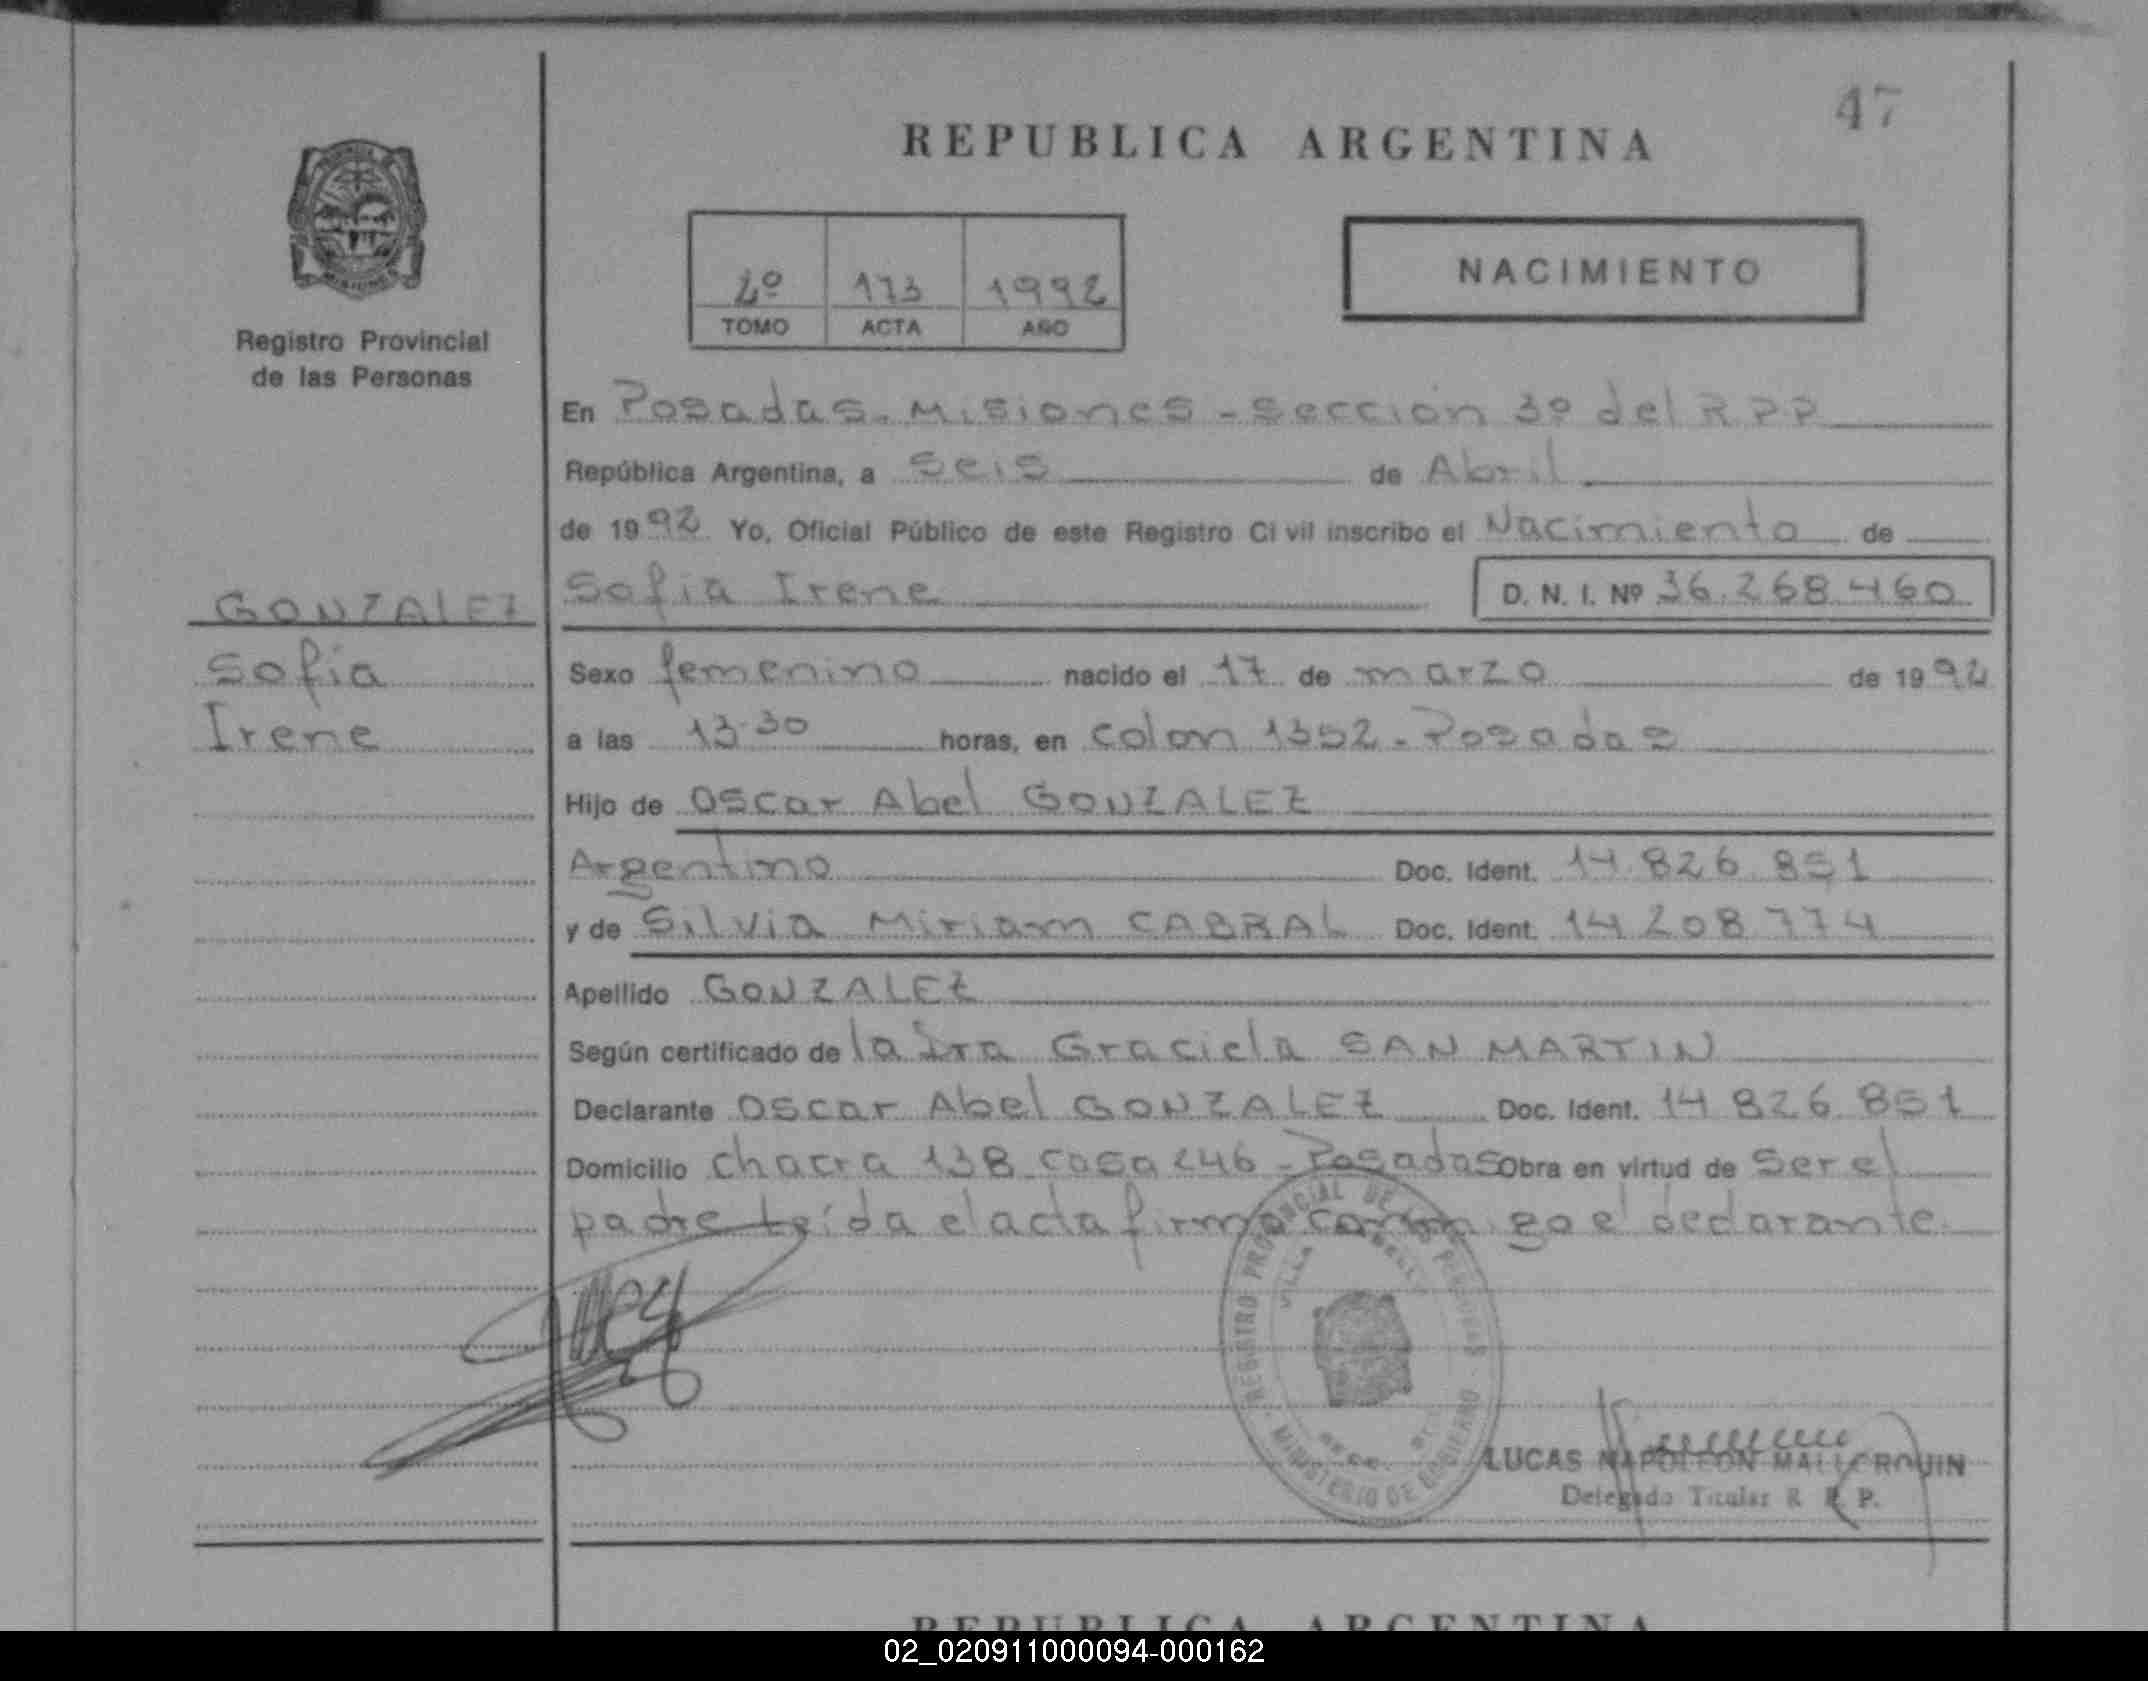 47
REPUBLICA ARGENTINA
NACIMIENTO
2º 173 1992
TOMO ACTA AÑO
Registro Provincial
de las Personas
En Posadas. Misiones - Sección 3º del R.P.P
República Argentina, a Seis de Abril
de 1992 Yo, Oficial Público de este Registro Civil inscribo el Nacimiento de
Sofia Irene D. N. I. Nº 36.268.460
GONZALEZ
Sofia
Irene
Sexo femenino nacido el 17 de marzo de 1992
a las 13.30 horas, en Colon 1352 - Posadas
Hijo de Oscar Abel GONZALEZ
Argentino Doc. Ident. 14.826.851
y de Silvia Miriam CABRAL Doc. Ident. 14 208 774
Apellido GONZALEZ
Según certificado de la Dra Graciela SAN MARTIN
Declarante Oscar Abel GONZALEZ Doc. Ident. 14 826 851
Domicilio chacra 138 casa 246 - Posadas Obra en virtud de Ser el
padre Leída el acta firma conmigo el declarante.
REGISTRO PROVINCIAL DE LAS PERSONAS
VILLA
MINISTERIO DE GOBIERNO
LUCAS NAPOLEON MALLORQUIN
Delegado Titular R. P. P.
REPUBLICA ARGENTINA
02_020911000094-000162